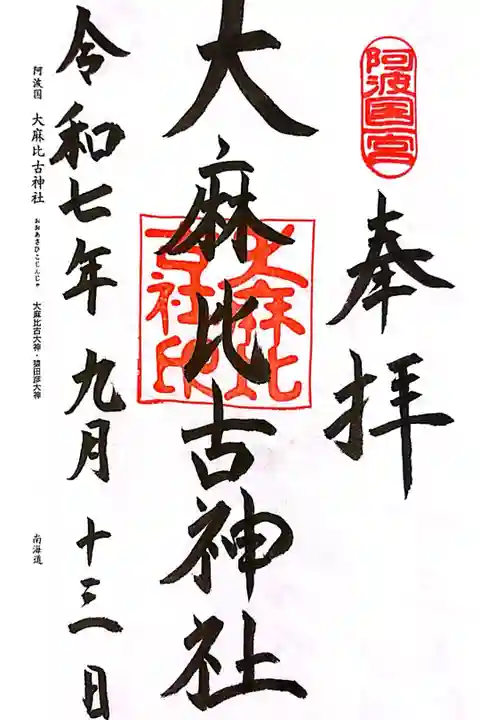 阿波国宮
奉拝
大麻比古神社
大麻比古社印
令和七年 九月 十三日
阿波国 大麻比古神社 おおあさひこじんじゃ 大麻比古大神・猿田彦大神 南海道